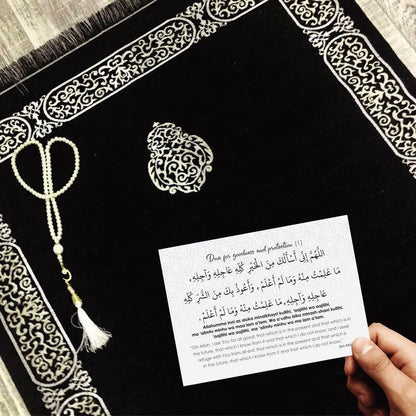 Dua for goodness and protection (1)
اللَّهُمَّ إِنِّي أَسْأَلُكَ مِنَ الْخَيْرِ كُلِّهِ عَاجِلِهِ وَآجِلِهِ،
مَا عَلِمْتُ مِنْهُ وَمَا لَمْ أَعْلَمْ، وَأَعُوذُ بِكَ مِنَ الشَّرِّ كُلِّهِ
عَاجِلِهِ وَآجِلِهِ، مَا عَلِمْتُ مِنْهُ وَمَا لَمْ أَعْلَمْ.
Allahumma inni as aluka minalkhayri kullihi, 'aajilihi wa aajilihi,
ma 'alimtu minhu wa maa lam a'lam. Wa a'udhu bika minash-sharri kullihi,
'aajilihi wa aajilihi, ma 'alimtu minhu wa maa lam a'lam.
"Oh Allah, I ask You for all good; that which is in the present and that which is in
the future, that which I know from it and that which I do not know; and I seek
refuge with You from all evil; that which is in the present and that which is
in the future, that which I know from it and that which I do not know."